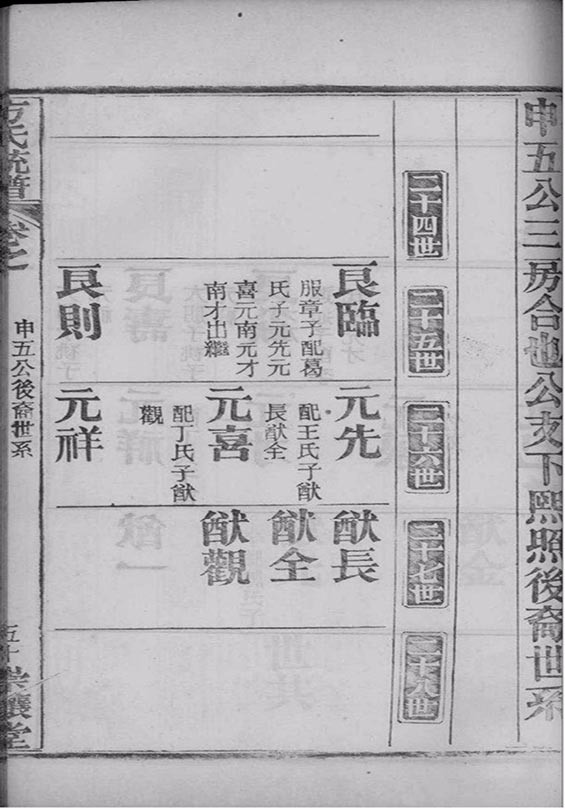 申五公三房合也公支下熙照後裔世系
二十四世
二十五世
二十六世
二十七世
二十八世
良臨
服章子配葛
氏子元先元
喜元南元才
南才出繼
良則
元先
配王氏子猷
長猷全
元喜
配丁氏子猷
觀
元祥
猷長
猷全
猷觀
方氏統譜
卷之
申五公後裔世系
五十
崇讓堂